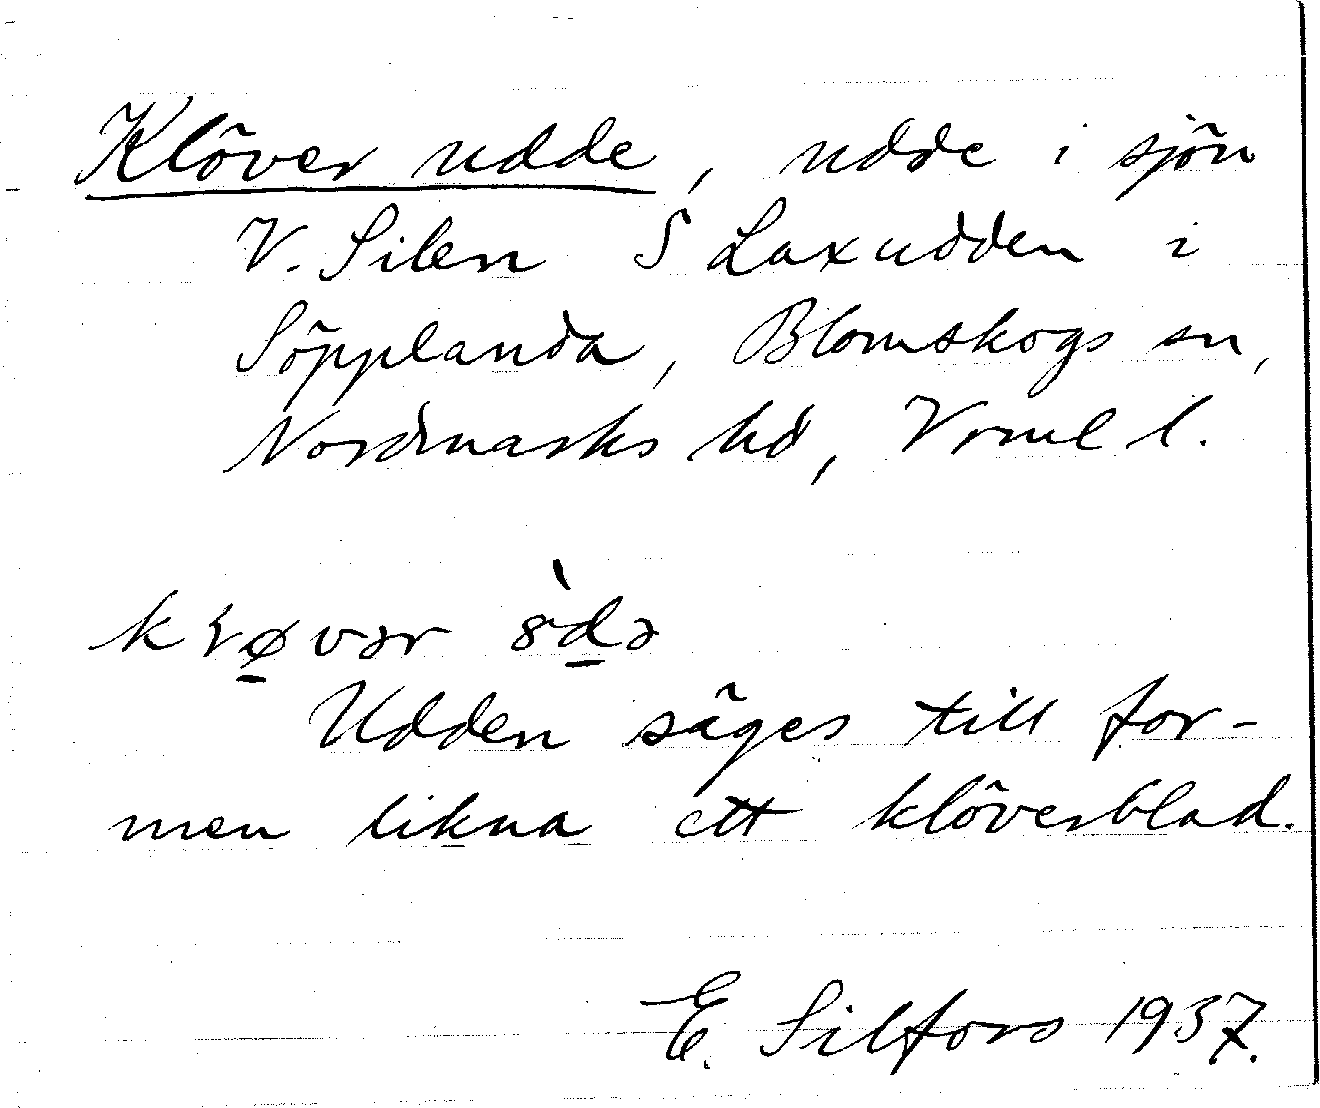 Klöver udde, udde i sjön
V. Silen S Laxudden i
Söpplanda, Blomskogs sn,
Nordmarks hd, Vrml l.
Udden säges till for-
men likna ett klöverblad.
E. Silfors 1937.